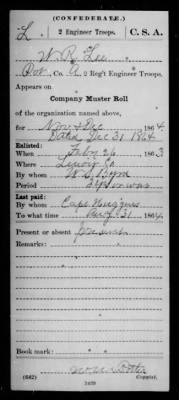 (CONFEDERATE.)
L. 2 Engineer Troops. C. S. A.
W. R. Lee
Co. A, 2 Reg't Engineer Troops.
Appears on
Company Muster Roll
of the organization named above,
for Nov & Dec 1864
Dated Dec 31 1864
Enlisted:
When Feby 26, 1863
Where Lenoir Co
By whom W. S. Byrd
Period 3 yrs or war
Last paid:
By whom Capt
To what time 31, 1864
Present or absent Present
Remarks:
Book mark:
(642)
Copyist.